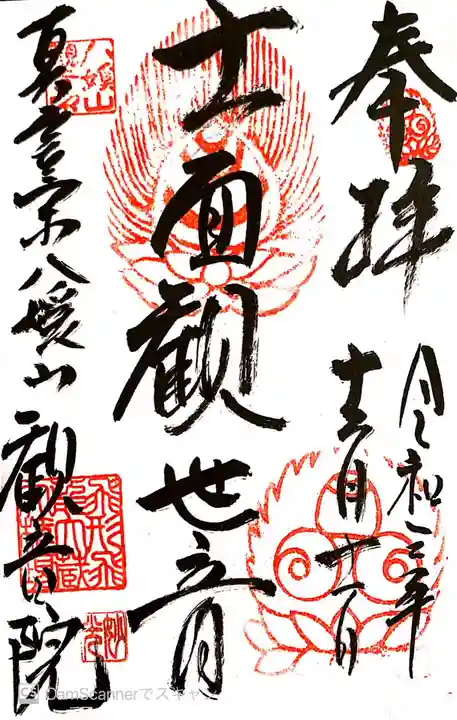 奉拝
令和三年
十二月十一日
十一面観世音
真言宗八媛山観音院
CS CamScannerでスキャン